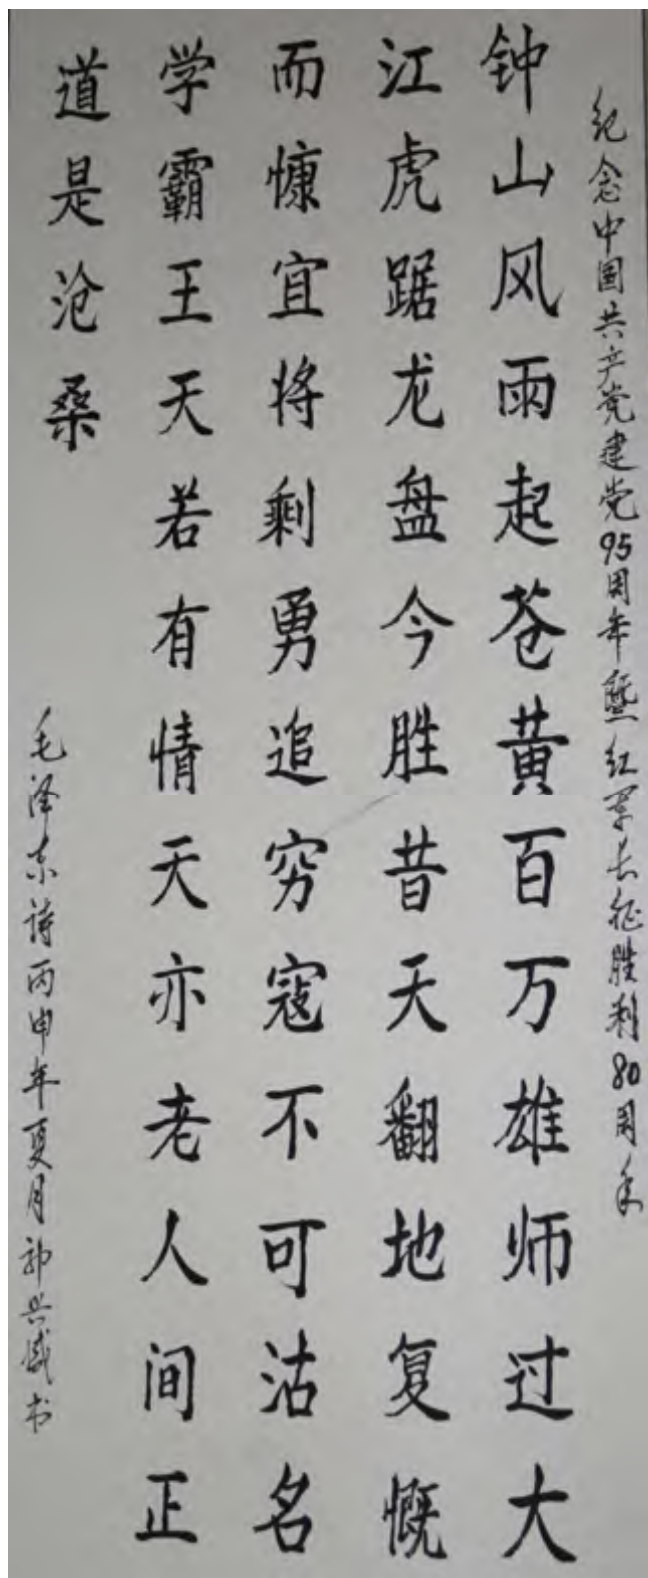 纪念中国共产党建党95周年暨红军长征胜利80周年
钟山风雨起苍黄百万雄师过大
江虎踞龙盘今胜昔天翻地复慨
而慷宜将剩勇追穷寇不可沽名
学霸王天若有情天亦老人间正
道是沧桑
毛泽东诗丙申年夏月郭兴盛书